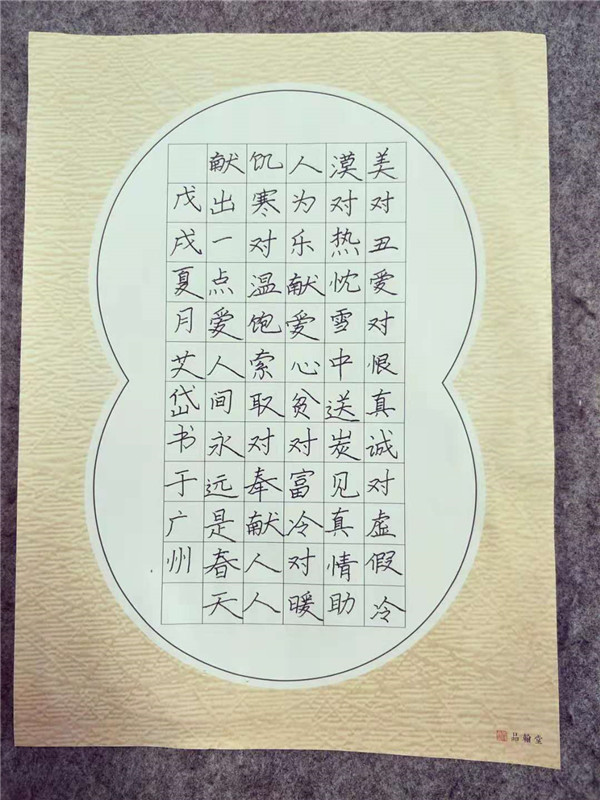 美对丑爱对恨真诚对虚假冷
漠对热忱雪中送炭见真情助
人为乐献爱心贫对富冷对暖
饥寒对温饱索取对奉献人人
献出一点爱人间永远是春天
戊戌夏月艾岱书于广州
品翰堂